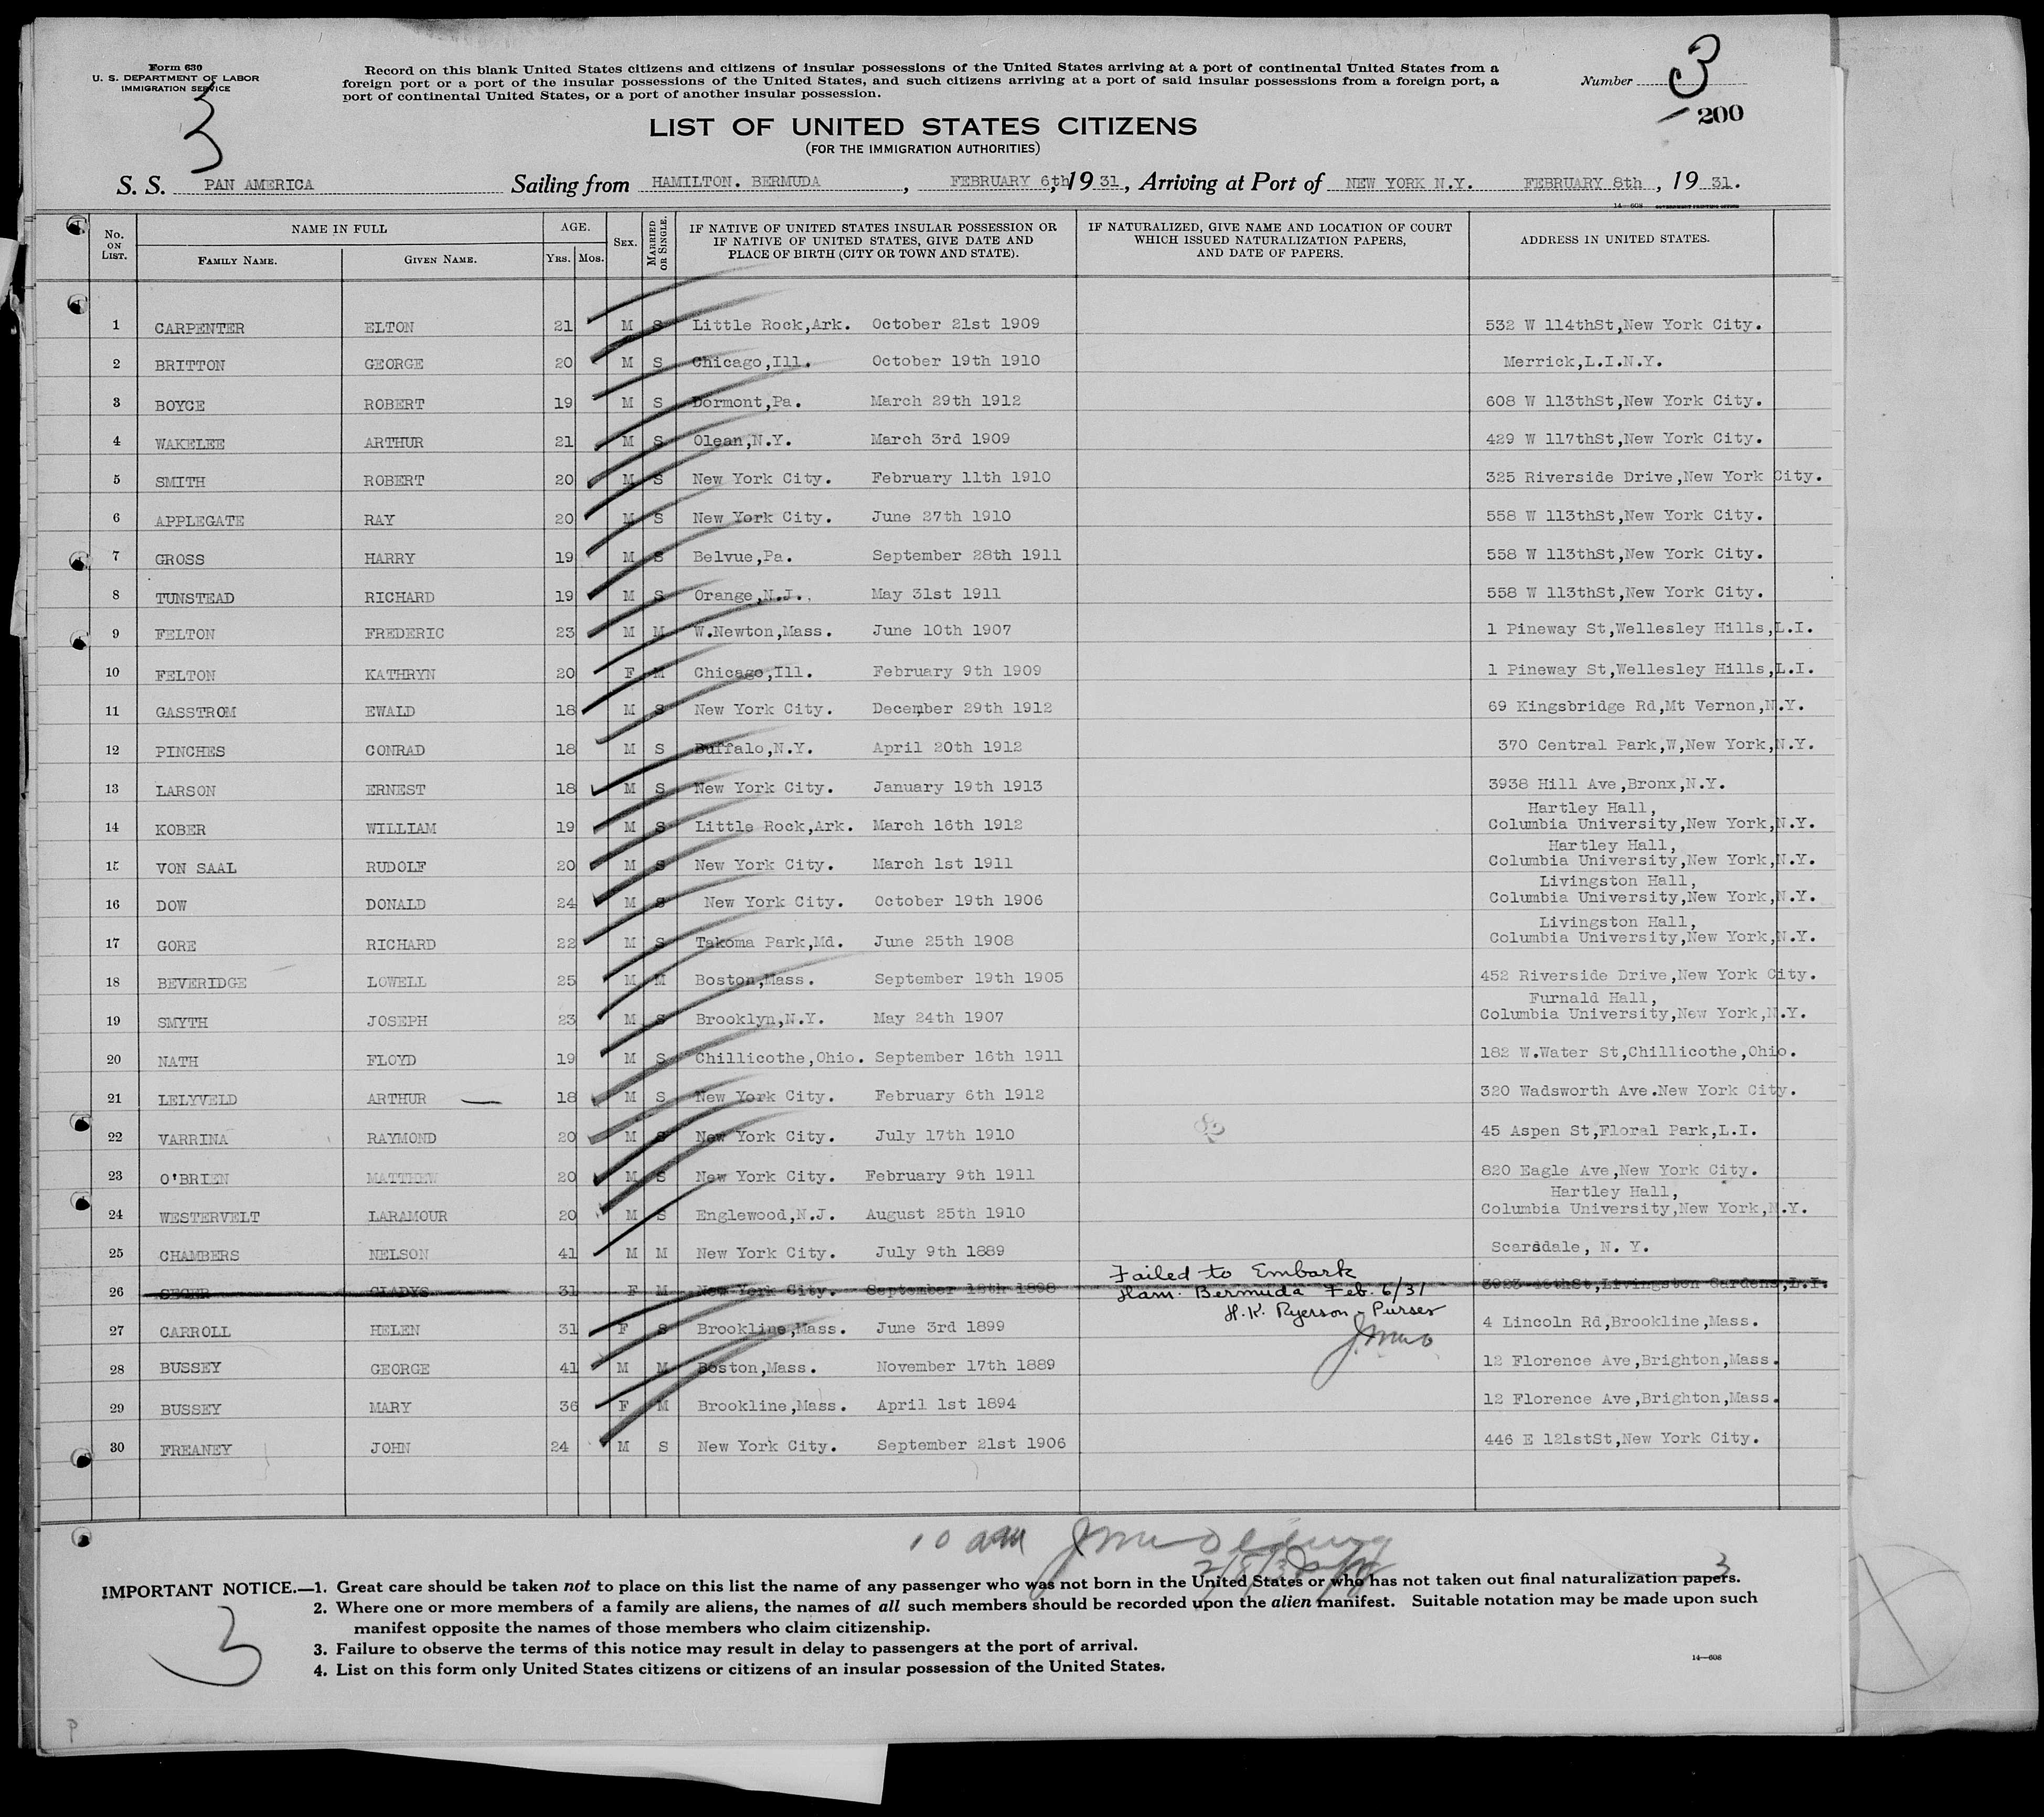 Form 630
U. S. DEPARTMENT OF LABOR
IMMIGRATION SERVICE
3
Record on this blank United States citizens and citizens of insular possessions of the United States arriving at a port of continental United States from a
foreign port or a port of the insular possessions of the United States, and such citizens arriving at a port of said insular possessions from a foreign port, a
port of continental United States, or a port of another insular possession.
Number 3
200
LIST OF UNITED STATES CITIZENS
(FOR THE IMMIGRATION AUTHORITIES)
S. S. PAN AMERICA Sailing from HAMILTON. BERMUDA, FEBRUARY 6th, 1931, Arriving at Port of NEW YORK N.Y. FEBRUARY 8th, 1931.
14—608 GOVERNMENT PRINTING OFFICE
No. ON LIST. NAME IN FULL FAMILY NAME. GIVEN NAME. AGE. YRS. MOS. SEX. MARRIED OR SINGLE. IF NATIVE OF UNITED STATES INSULAR POSSESSION OR IF NATIVE OF UNITED STATES, GIVE DATE AND PLACE OF BIRTH (CITY OR TOWN AND STATE). IF NATURALIZED, GIVE NAME AND LOCATION OF COURT WHICH ISSUED NATURALIZATION PAPERS, AND DATE OF PAPERS. ADDRESS IN UNITED STATES.
1 CARPENTER ELTON 21 M S Little Rock,Ark. October 21st 1909 532 W 114thSt,New York City.
2 BRITTON GEORGE 20 M S Chicago,Ill. October 19th 1910 Merrick,L.I.N.Y.
3 BOYCE ROBERT 19 M S Dormont,Pa. March 29th 1912 608 W 113thSt,New York City.
4 WAKELEE ARTHUR 21 M S Olean,N.Y. March 3rd 1909 429 W 117thSt,New York City.
5 SMITH ROBERT 20 M S New York City. February 11th 1910 325 Riverside Drive,New York City.
6 APPLEGATE RAY 20 M S New York City. June 27th 1910 558 W 113thSt,New York City.
7 GROSS HARRY 19 M S Belvue,Pa. September 28th 1911 558 W 113thSt,New York City.
8 TUNSTEAD RICHARD 19 M S Orange,N.J.. May 31st 1911 558 W 113thSt,New York City.
9 FELTON FREDERIC 23 M M W.Newton,Mass. June 10th 1907 1 Pineway St,Wellesley Hills,L.I.
10 FELTON KATHRYN 20 F M Chicago,Ill. February 9th 1909 1 Pineway St,Wellesley Hills,L.I.
11 GASSTROM EWALD 18 M S New York City. December 29th 1912 69 Kingsbridge Rd,Mt Vernon,N.Y.
12 PINCHES CONRAD 18 M S Buffalo,N.Y. April 20th 1912 370 Central Park,W,New York,N.Y.
13 LARSON ERNEST 18 M S New York City. January 19th 1913 3938 Hill Ave,Bronx,N.Y.
14 KOBER WILLIAM 19 M S Little Rock,Ark. March 16th 1912 Hartley Hall,
Columbia University,New York,N.Y.
15 VON SAAL RUDOLF 20 M S New York City. March 1st 1911 Hartley Hall,
Columbia University,New York,N.Y.
16 DOW DONALD 24 M S New York City. October 19th 1906 Livingston Hall,
Columbia University,New York,N.Y.
17 GORE RICHARD 22 M S Takoma Park,Md. June 25th 1908 Livingston Hall,
Columbia University,New York,N.Y.
18 BEVERIDGE LOWELL 25 M M Boston,Mass. September 19th 1905 452 Riverside Drive,New York City.
19 SMYTH JOSEPH 23 M S Brooklyn,N.Y. May 24th 1907 Furnald Hall,
Columbia University,New York,N.Y.
20 NATH FLOYD 19 M S Chillicothe,Ohio. September 16th 1911 182 W.Water St,Chillicothe,Ohio.
21 LELYVELD ARTHUR — 18 M S New York City. February 6th 1912 320 Wadsworth Ave.New York City.
22 VARRINA RAYMOND 20 M S New York City. July 17th 1910 45 Aspen St,Floral Park,L.I.
23 O'BRIEN MATTHEW 20 M S New York City. February 9th 1911 820 Eagle Ave,New York City.
24 WESTERVELT LARAMOUR 20 M S Englewood,N.J. August 25th 1910 Hartley Hall,
Columbia University,New York,N.Y.
25 CHAMBERS NELSON 41 M M New York City. July 9th 1889 Scarsdale, N. Y.
26 SEGER GLADYS 31 F M New York City. September 18th 1898 Failed to Embark
Ham. Bermuda Feb. 6/31
H.K. Ryerson - Purser
3923 46thSt,Livingston Gardens,L.I.
27 CARROLL HELEN 31 F S Brookline,Mass. June 3rd 1899 4 Lincoln Rd,Brookline,Mass.
28 BUSSEY GEORGE 41 M M Boston,Mass. November 17th 1889 12 Florence Ave,Brighton,Mass.
29 BUSSEY MARY 36 F M Brookline,Mass. April 1st 1894 12 Florence Ave,Brighton,Mass.
30 FREANEY JOHN 24 M S New York City. September 21st 1906 446 E 121stSt,New York City.
10 am
3
IMPORTANT NOTICE.—1. Great care should be taken not to place on this list the name of any passenger who was not born in the United States or who has not taken out final naturalization papers.
2. Where one or more members of a family are aliens, the names of all such members should be recorded upon the alien manifest. Suitable notation may be made upon such
manifest opposite the names of those members who claim citizenship.
3. Failure to observe the terms of this notice may result in delay to passengers at the port of arrival.
4. List on this form only United States citizens or citizens of an insular possession of the United States.
3
14—608
P